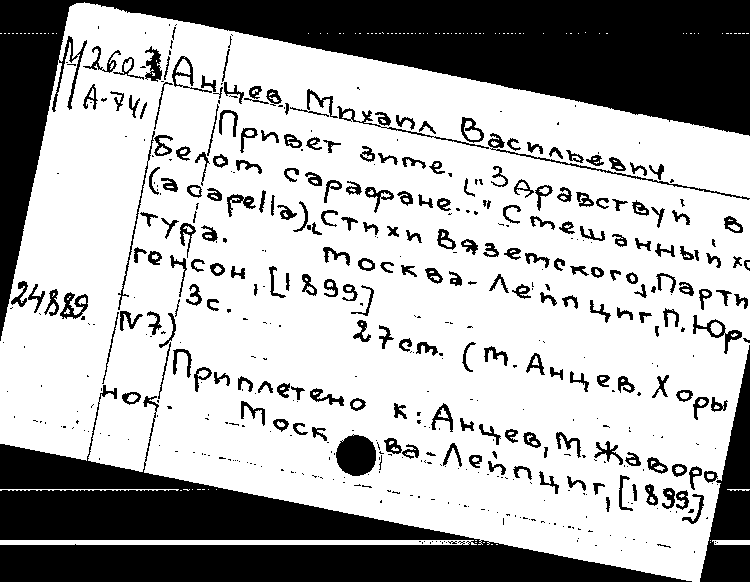 М260-3 Анцев, Михаил Васильевич.
А-741
Привет зиме. [„Здравствуй в
белом сарафане..." Смешанный хо
(a capella). Стихи Вяземского]. Парти
тура. Москва-Лейпциг, П. Юр-
генсон, [1899.]
24889. 3с. 27 см. (М. Анцев. Хоры
N 7.)
Приплетено к: Анцев, М. Жаворо-
нок. Москва-Лейпциг, [1899.]